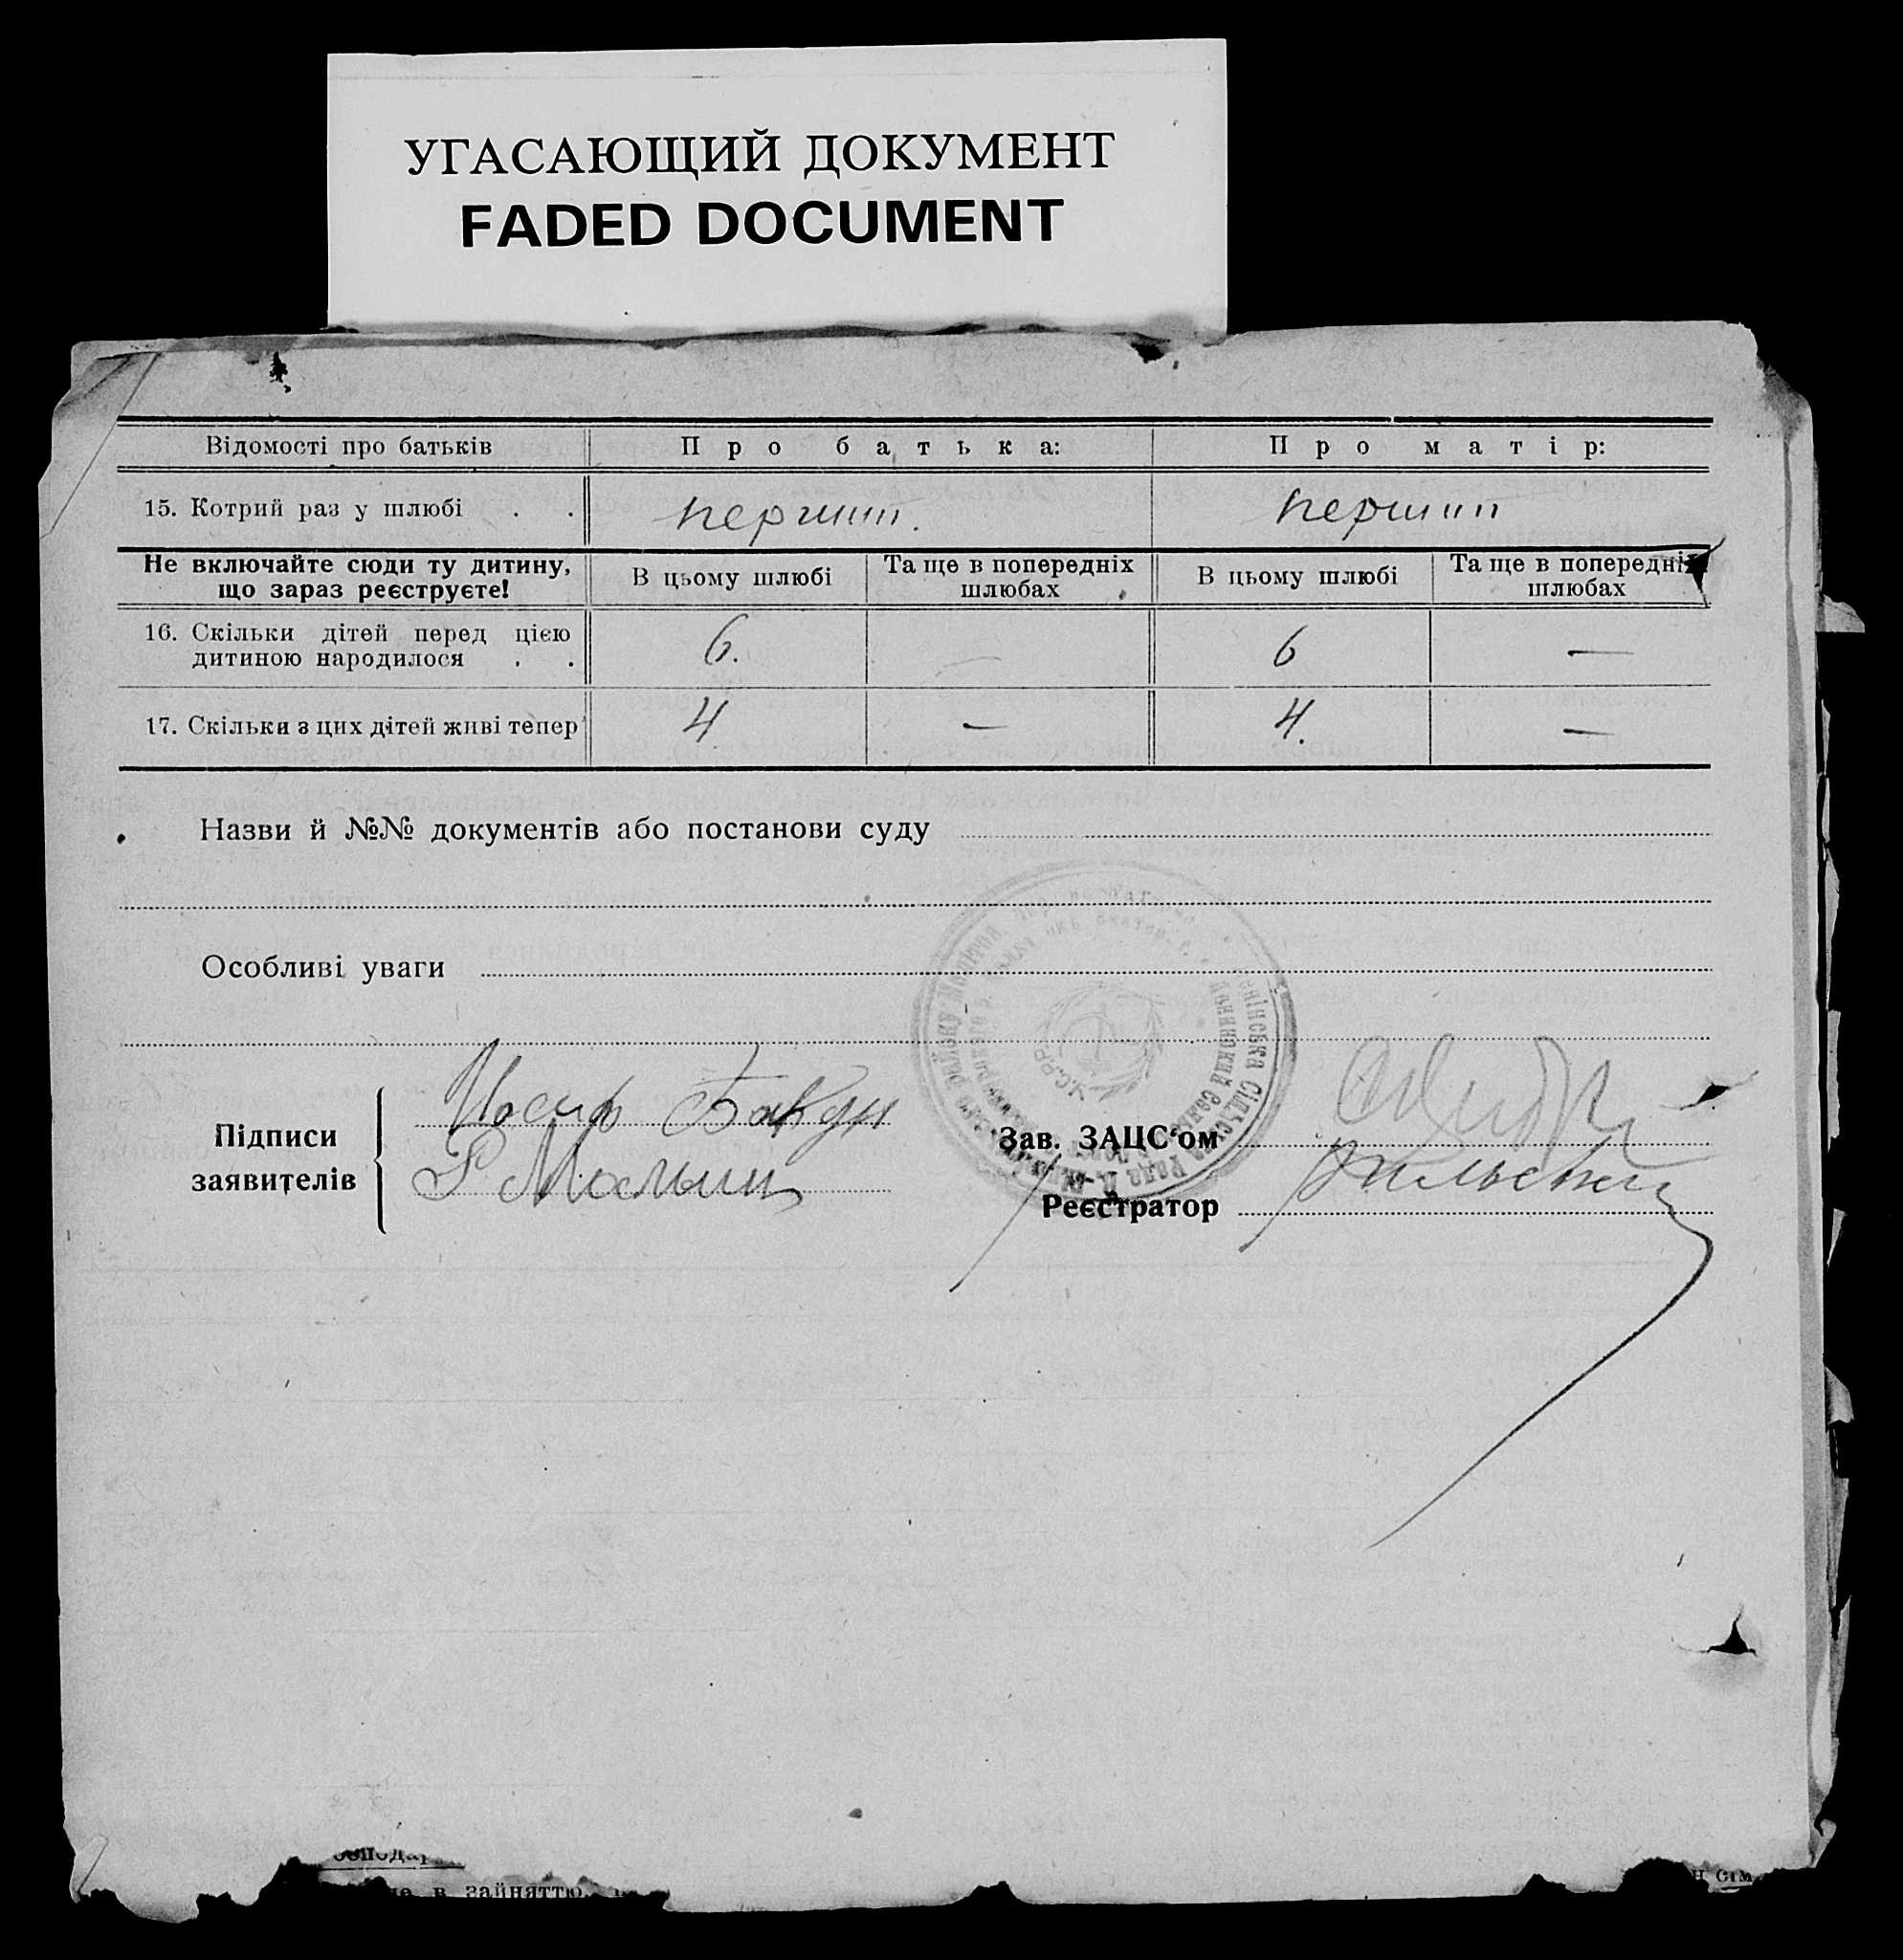 УГАСАЮЩИЙ ДОКУМЕНТ
FADED DOCUMENT
Відомості про батьків Про батька: Про матір:
15. Котрий раз у шлюбі . . перший. перший
Не включайте сюди ту дитину, що зараз реєструєте! В цьому шлюбі Та ще в попередніх шлюбах В цьому шлюбі Та ще в попередніх шлюбах
16. Скільки дітей перед цією дитиною народилося . . 6. 6 —
17. Скільки з цих дітей живі тепер 4 — 4. —
Назви й №№ документів або постанови суду
Особливі уваги
Підписи заявителів
Иосиф
Зав. ЗАЦС‘ом
Реєстратор
У.С.Р.Р.
в зайняттю